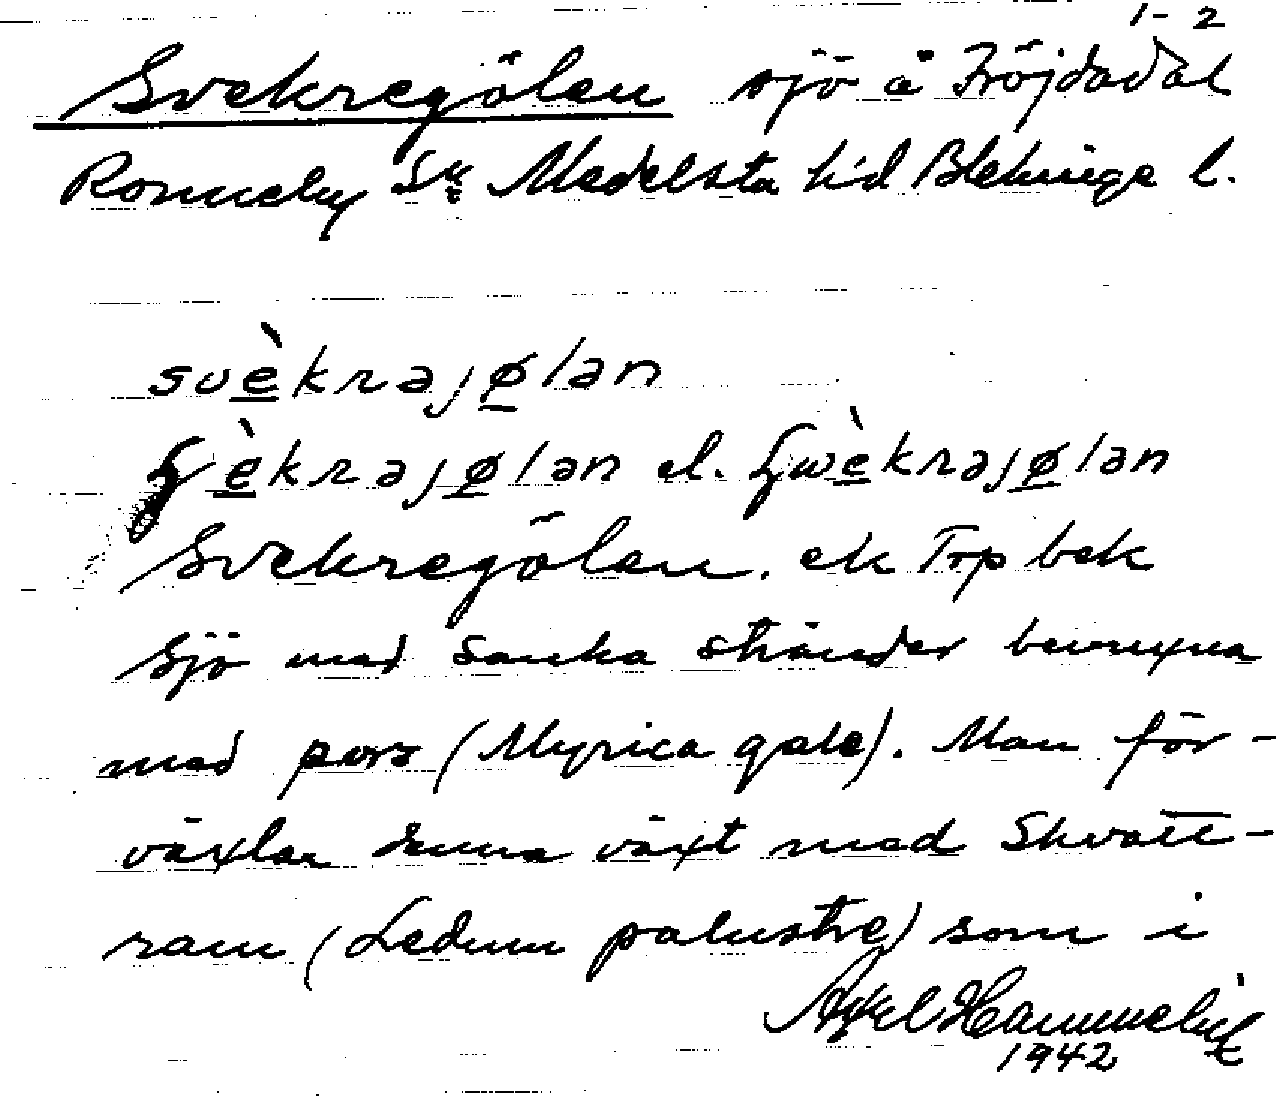 1-2
Svekregölen sjö å Fröjdadal
Ronneby Sn Medelsta hd Blekinge l.
svèkrəjølən
èkrəjølən el. wèkrəjølən
Svekregölen. ek Trp bek
Sjö med sanka stränder bevuxna
med pors (Myrica gale). Man för-
växlar denna växt med Skvatt-
ram (Ledum palustre) som i
Axel
1942